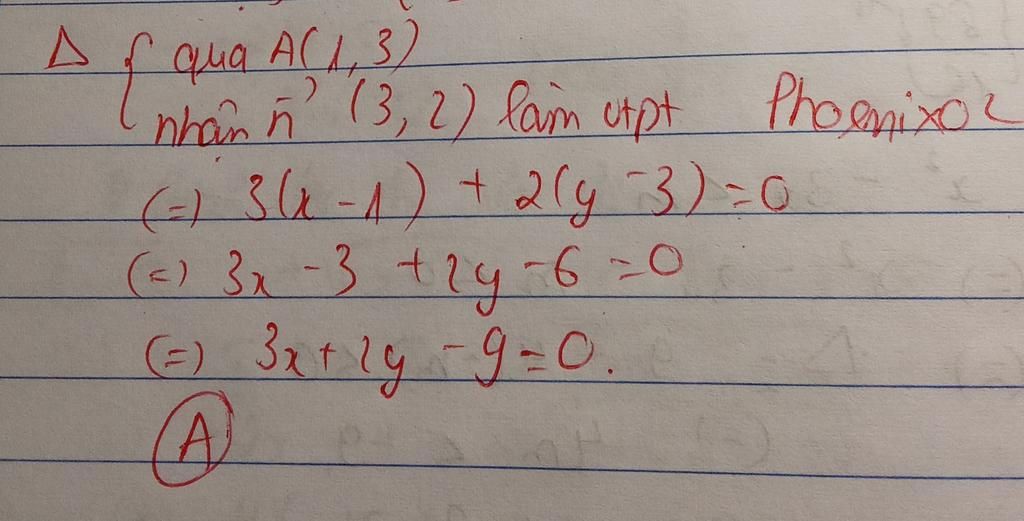 Δ { qua A(1, 3)
nhận n⃗ (3, 2) làm vtpt Phoenixoc
(=) 3(x - 1) + 2(y - 3) = 0
(=) 3x - 3 + 2y - 6 = 0
(=) 3x + 2y - 9 = 0.
A